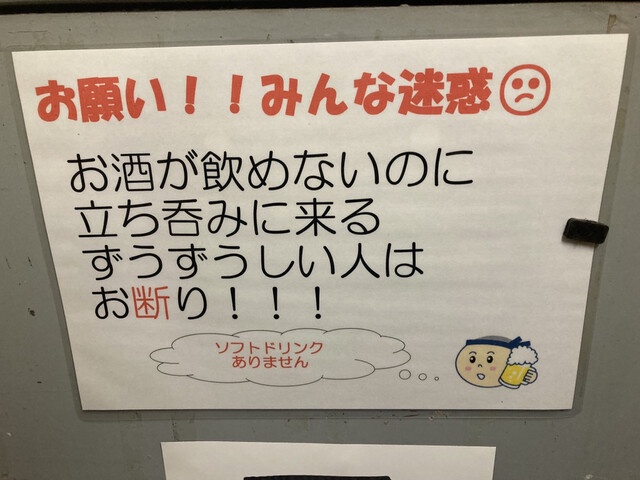 お願い！！みんな迷惑
お酒が飲めないのに
立ち呑みに来る
ずうずうしい人は
お断り！！！
ソフトドリンク
ありません